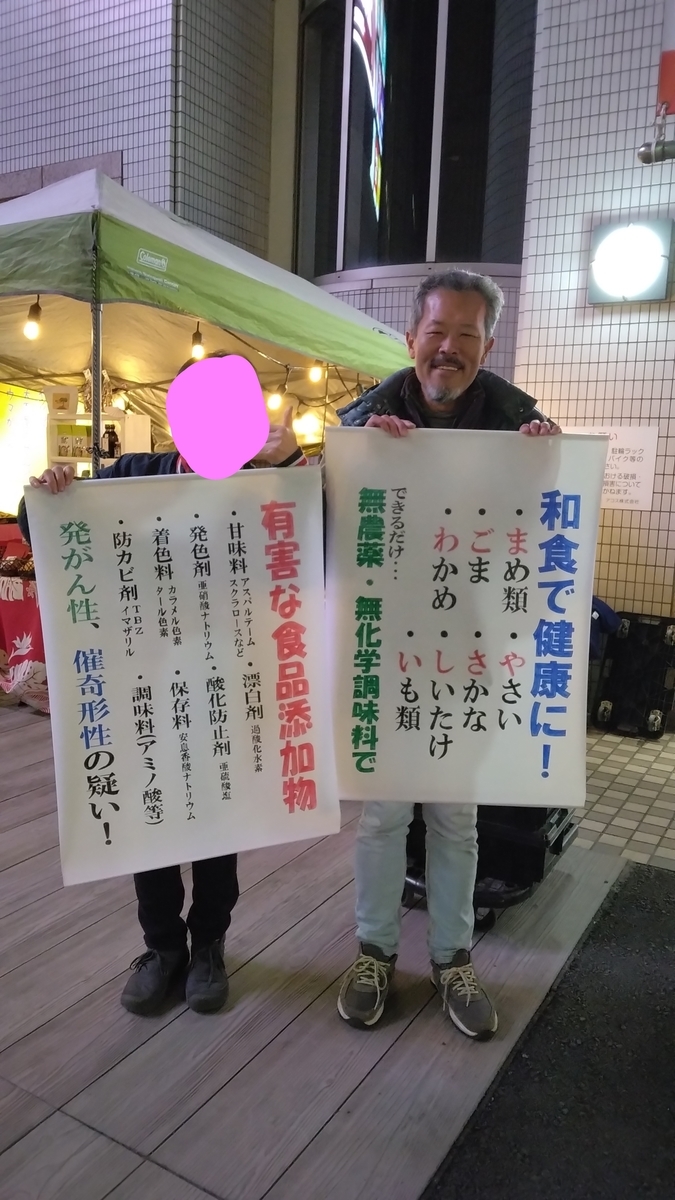 和食で健康に！
・まめ類
・やさい
・ごま
・さかな
・わかめ
・しいたけ
・いも類
できるだけ…
無農薬・無化学調味料で
有害な食品添加物
・甘味料 アスパルテーム スクラロースなど
・漂白剤 過酸化水素
・発色剤 亜硝酸ナトリウム
・酸化防止剤 亜硫酸塩
・着色料 カラメル色素 タール色素
・保存料 安息香酸ナトリウム
・防カビ剤 TBZ イマザリル
・調味料(アミノ酸等)
発がん性、催奇形性の疑い！
Coleman
駐輪ラック
バイク等の
さい。
おける破損
損害について
かねます。